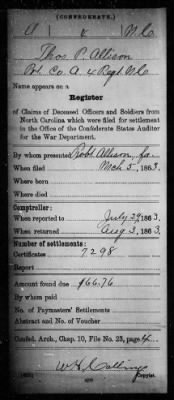 (CONFEDERATE.)
A 4 N.C.
Thos. P. Allison
Pvt. Co. A. 4 Regt. N.C.
Name appears on a
Register
of Claims of Deceased Officers and Soldiers from
North Carolina which were filed for settlement
in the Office of the Confederate States Auditor
for the War Department.
By whom presented Robt. Allison, fa.
When filed Mch 5, 1863
Where born
Where died
Comptroller:
When reported to July 29, 1863.
When returned Aug 3, 1863.
Number of settlements:
Certificates 7298
Report
Amount found due $66.76
By whom paid
No. Paymasters' Settlements
Abstract and No. of Voucher
Confed. Arch., Chap. 10, File No. 23, page
W. H. Collins
Copyist.